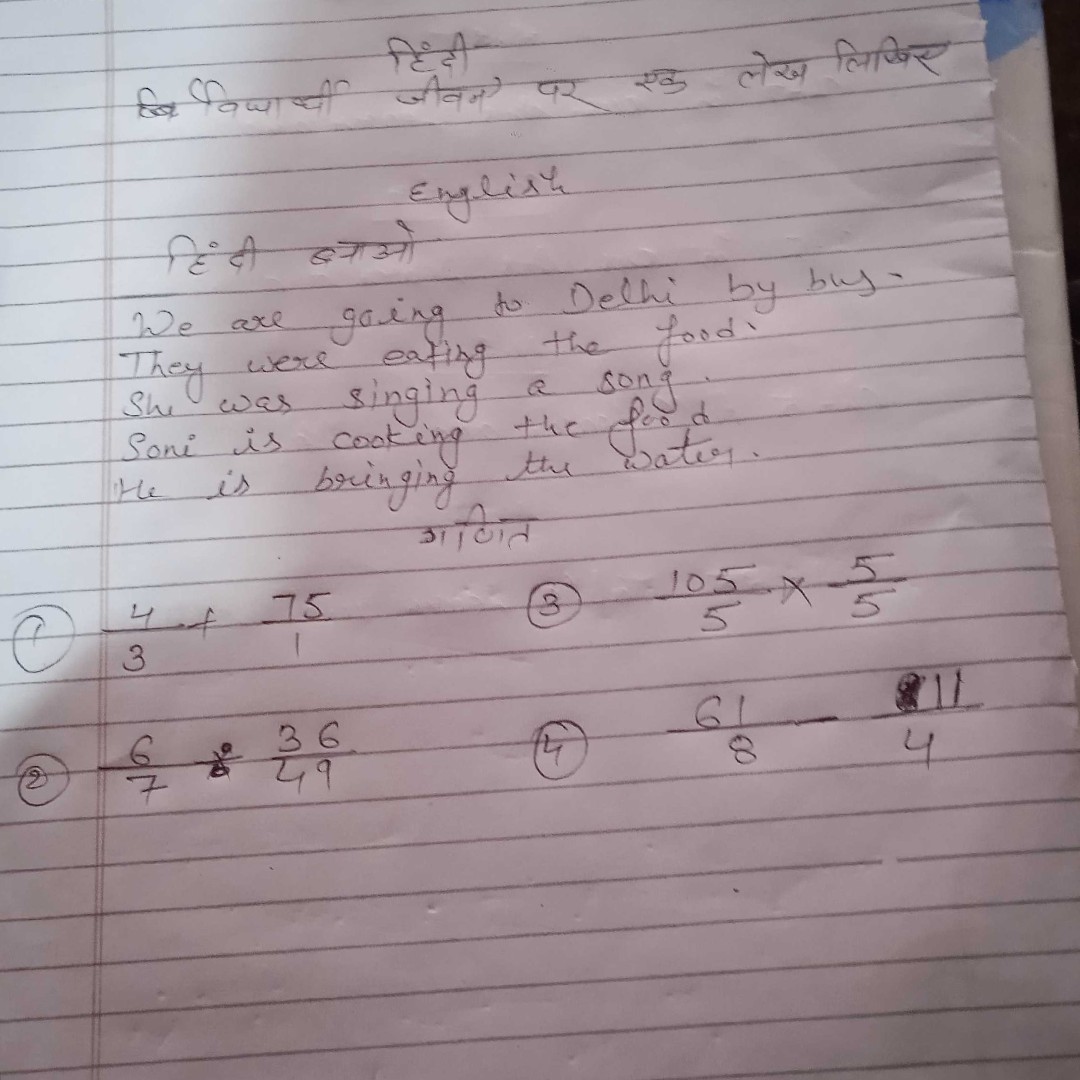 हिंदी
विद्यार्थी जीवन पर एक लेख लिखिए
English
हिंदी बनाओ
We are going to Delhi by bus.
They were eating the food.
She was singing a song.
Soni is cooking the food
He is bringing the water.
गणित
① 4/3 + 75/1 ③ 105/5 × 5/5
② 6/7 ÷ 36/49 ④ 61/8 - 11/4